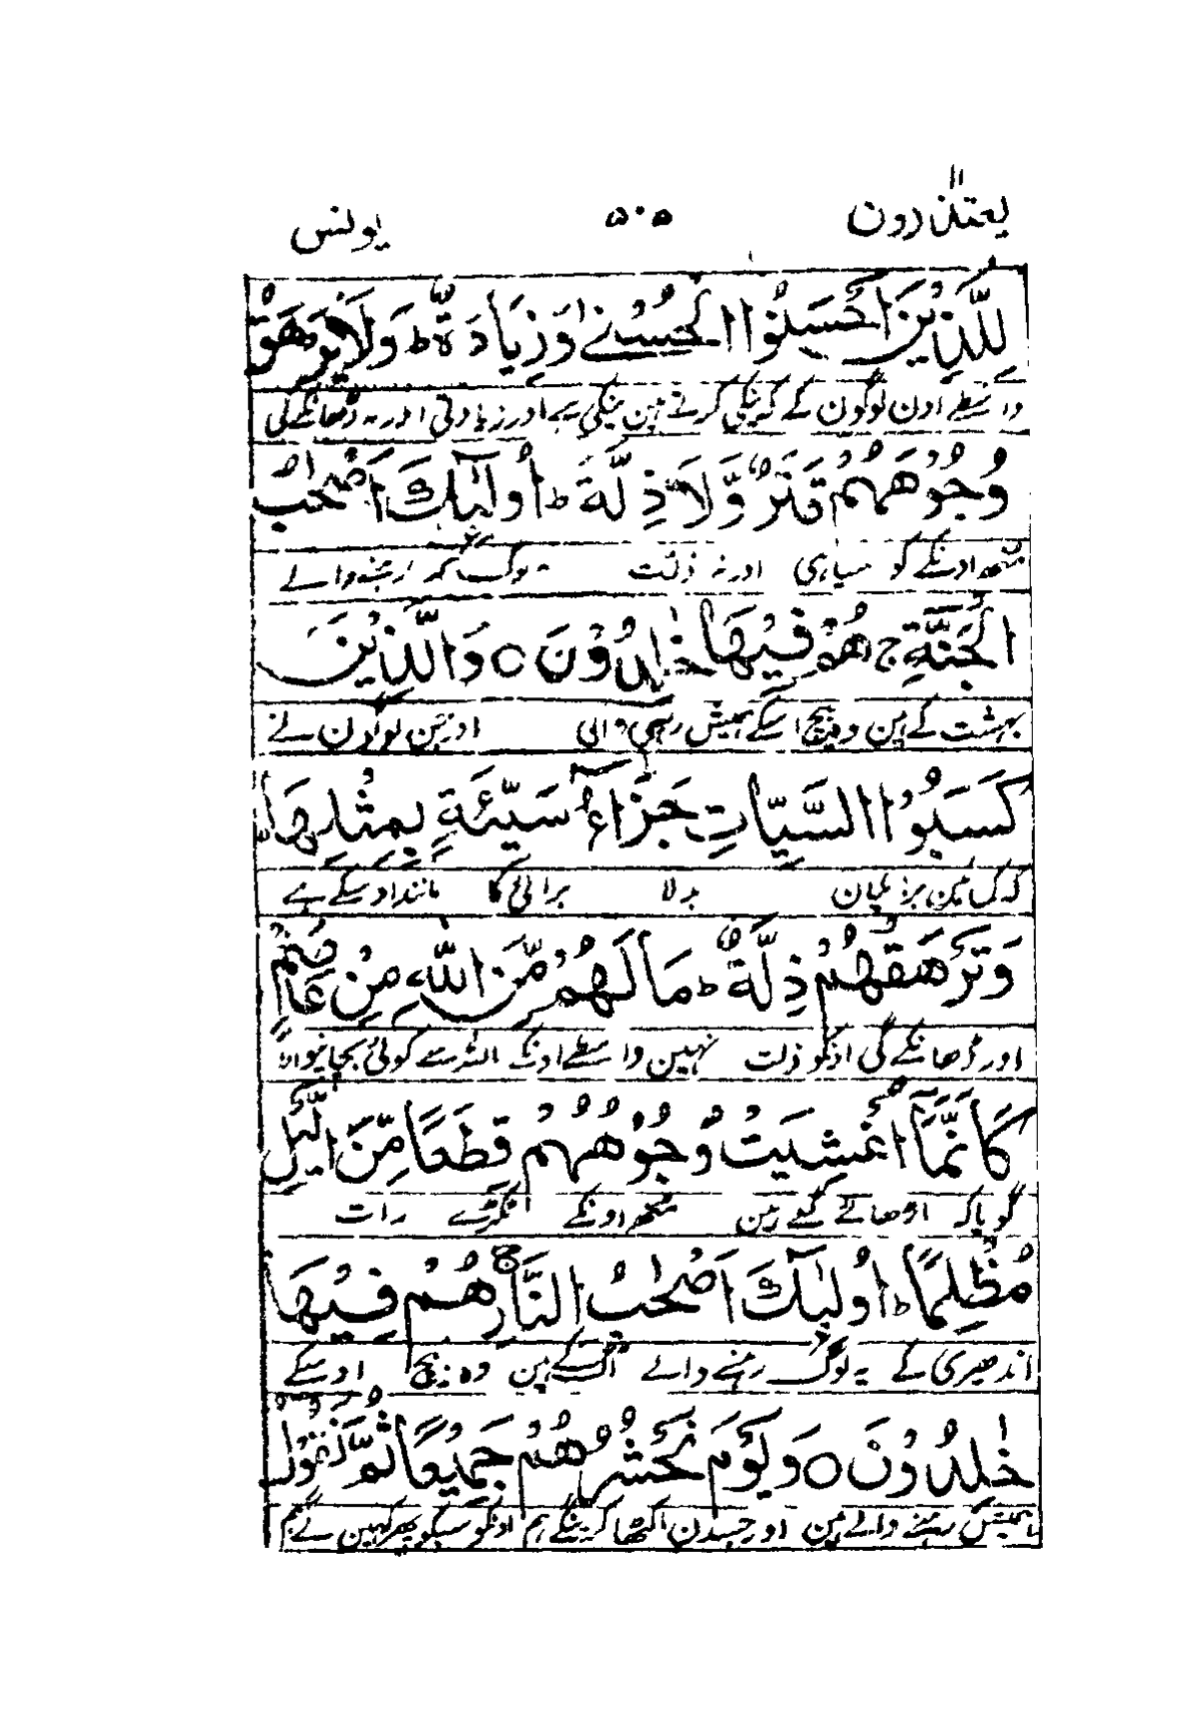 یعتذرون ۱۱ ۵۰۵ یونس
لِلَّذِيْنَ اَحْسَنُوا الْحُسْنٰى وَزِيَادَةٌ ط وَلَا يَرْهَقُ
واسطے اون لوگون کے کہ نیکی کرتے ہین نیکی ہے اور زیادتی اور نہ ڈھانکے گی
وُجُوْهَهُمْ قَتَرٌ وَّلَا ذِلَّةٌ ط اُولٰٓئِكَ اَصْحٰبُ
منھہ اونکے کو سیاہی اور نہ ذلت یہ لوگ ہین رہنے والے
الْجَنَّةِ ج هُمْ فِيْهَا خٰلِدُوْنَ ○ وَالَّذِيْنَ
بہشت کے ہین وہ بیچ اسکے ہمیش رہنی والی اور جن لوگون نے
كَسَبُوا السَّيِّاٰتِ جَزَآءُ سَيِّئَةٍ بِمِثْلِهَا لا
کہ کمائین برائیان بدلا برائی کا مانند اوسکے ہے
وَتَرْهَقُهُمْ ذِلَّةٌ ط مَا لَهُمْ مِّنَ اللّٰهِ مِنْ عَاصِمٍ
اور ڈھانکے گی اونکو ذلت نہین واسطے اونکے اللہ سے کوئی بچانیوالا
كَاَنَّمَآ اُغْشِيَتْ وُجُوْهُهُمْ قِطَعًا مِّنَ الَّيْلِ
گویا کہ اوڑھائے گئے ہین منھہ اونکے ٹکڑے رات
مُظْلِمًا ط اُولٰٓئِكَ اَصْحٰبُ النَّارِ ج هُمْ فِيْهَا
اندھیری کے یہ لوگ رہنے والے آگ کے ہین وہ بیچ اوسکے
خٰلِدُوْنَ ○ وَيَوْمَ نَحْشُرُهُمْ جَمِيْعًا ثُمَّ نَقُوْلُ
ہمیش رہنے والے ہین اور جسدن اکٹھا کرینگے ہم اونکو سبکو پھر کہین گے ہم